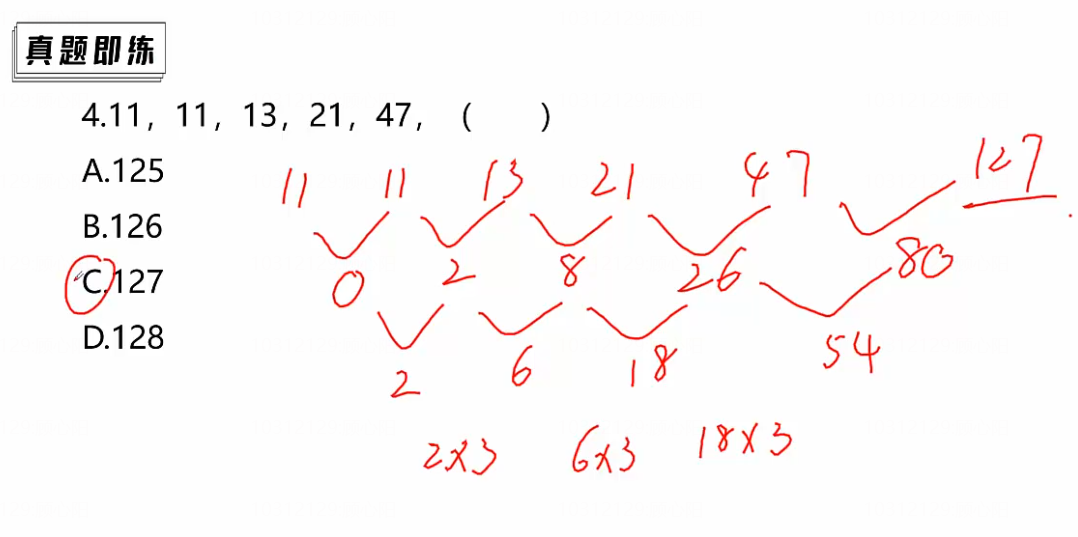 真题即练
4.11，11，13，21，47，（　　）
A.125
B.126
C.127
D.128
11 11 13 21 47 127
0 2 8 26 80
2 6 18 54
2×3 6×3 18×3